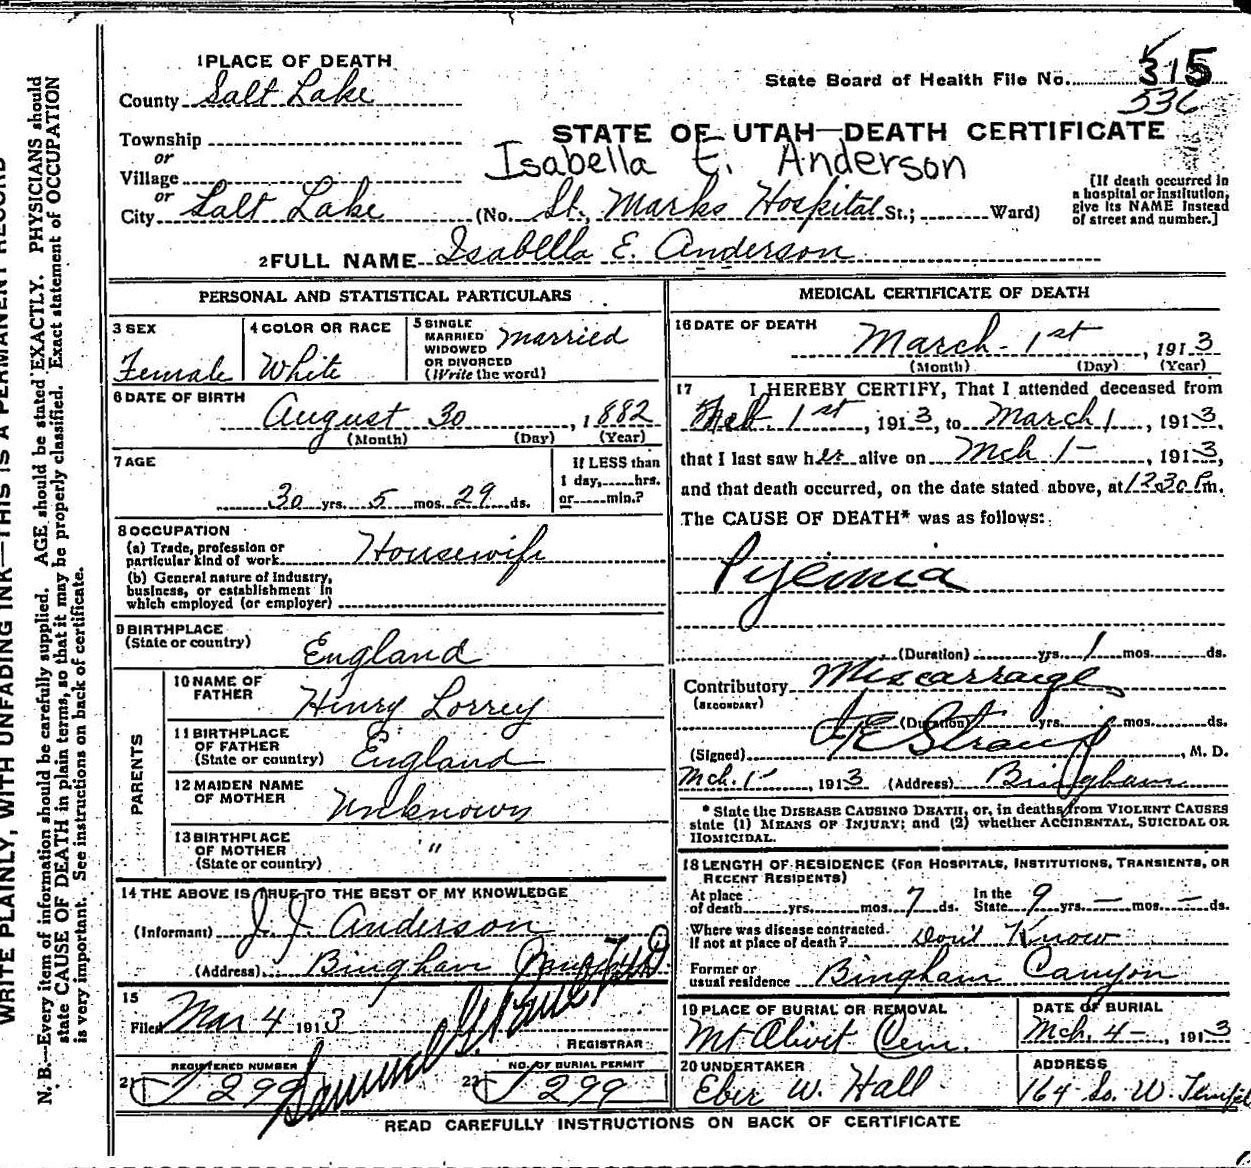 1 PLACE OF DEATH
County Salt Lake
State Board of Health File No. 315
536
Township
or
Village
or
City Salt Lake
STATE OF UTAH—DEATH CERTIFICATE
Isabella E. Anderson
(No. St. Marks Hospital St.; Ward)
[If death occurred in
a hospital or institution,
give its NAME instead
of street and number.]
2 FULL NAME Isabella E. Anderson
PERSONAL AND STATISTICAL PARTICULARS
3 SEX
Female
4 COLOR OR RACE
White
5 SINGLE
MARRIED
WIDOWED
OR DIVORCED
(Write the word)
Married
6 DATE OF BIRTH
August 30, 1882
(Month) (Day) (Year)
7 AGE
30 yrs. 5 mos. 29 ds.
If LESS than
1 day, hrs.
or min.?
8 OCCUPATION
(a) Trade, profession or
particular kind of work Housewife
(b) General nature of industry,
business, or establishment in
which employed (or employer)
9 BIRTHPLACE
(State or country) England
PARENTS
10 NAME OF
FATHER Henry Lorrey
11 BIRTHPLACE
OF FATHER
(State or country) England
12 MAIDEN NAME
OF MOTHER Unknown
13 BIRTHPLACE
OF MOTHER "
(State or country)
14 THE ABOVE IS TRUE TO THE BEST OF MY KNOWLEDGE
(Informant) J. J. Anderson
(Address) Bingham
15
Filed Mar 4 1913
Samuel G.
REGISTRAR
REGISTERED NUMBER
21 299
NO. OF BURIAL PERMIT
22 299
MEDICAL CERTIFICATE OF DEATH
16 DATE OF DEATH
March 1st, 1913
(Month) (Day) (Year)
17 I HEREBY CERTIFY, That I attended deceased from
Mch. 1st, 1913, to March 1, 1913,
that I last saw her alive on Mch 1-, 1913,
and that death occurred, on the date stated above, at 12:30 Pm.
The CAUSE OF DEATH* was as follows:
Pyemia
(Duration) yrs. 1 mos. ds.
Contributory Miscarraige
(SECONDARY)
(Duration) yrs. mos. ds.
(Signed) , M. D.
Mch. 1-, 1913 (Address) Bingham
* State the DISEASE CAUSING DEATH, or, in deaths from VIOLENT CAUSES
state (1) MEANS OF INJURY; and (2) whether ACCIDENTAL, SUICIDAL OR
HOMICIDAL.
18 LENGTH OF RESIDENCE (FOR HOSPITALS, INSTITUTIONS, TRANSIENTS, OR
RECENT RESIDENTS)
At place
of death yrs. mos. 7 ds.
In the
State 9 yrs. — mos. — ds.
Where was disease contracted.
If not at place of death? Don't Know
Former or
usual residence Bingham Canyon
19 PLACE OF BURIAL OR REMOVAL
Mt Olivet Cem.
DATE OF BURIAL
Mch. 4-, 1913
20 UNDERTAKER
Eber W. Hall
ADDRESS
164 So. W. Temple
READ CAREFULLY INSTRUCTIONS ON BACK OF CERTIFICATE
WRITE PLAINLY, WITH UNFADING INK—THIS IS A PERMANENT RECORD
N. B.—Every item of information should be carefully supplied. AGE should be stated EXACTLY. PHYSICIANS should
state CAUSE OF DEATH in plain terms, so that it may be properly classified. Exact statement of OCCUPATION
is very important. See instructions on back of certificate.